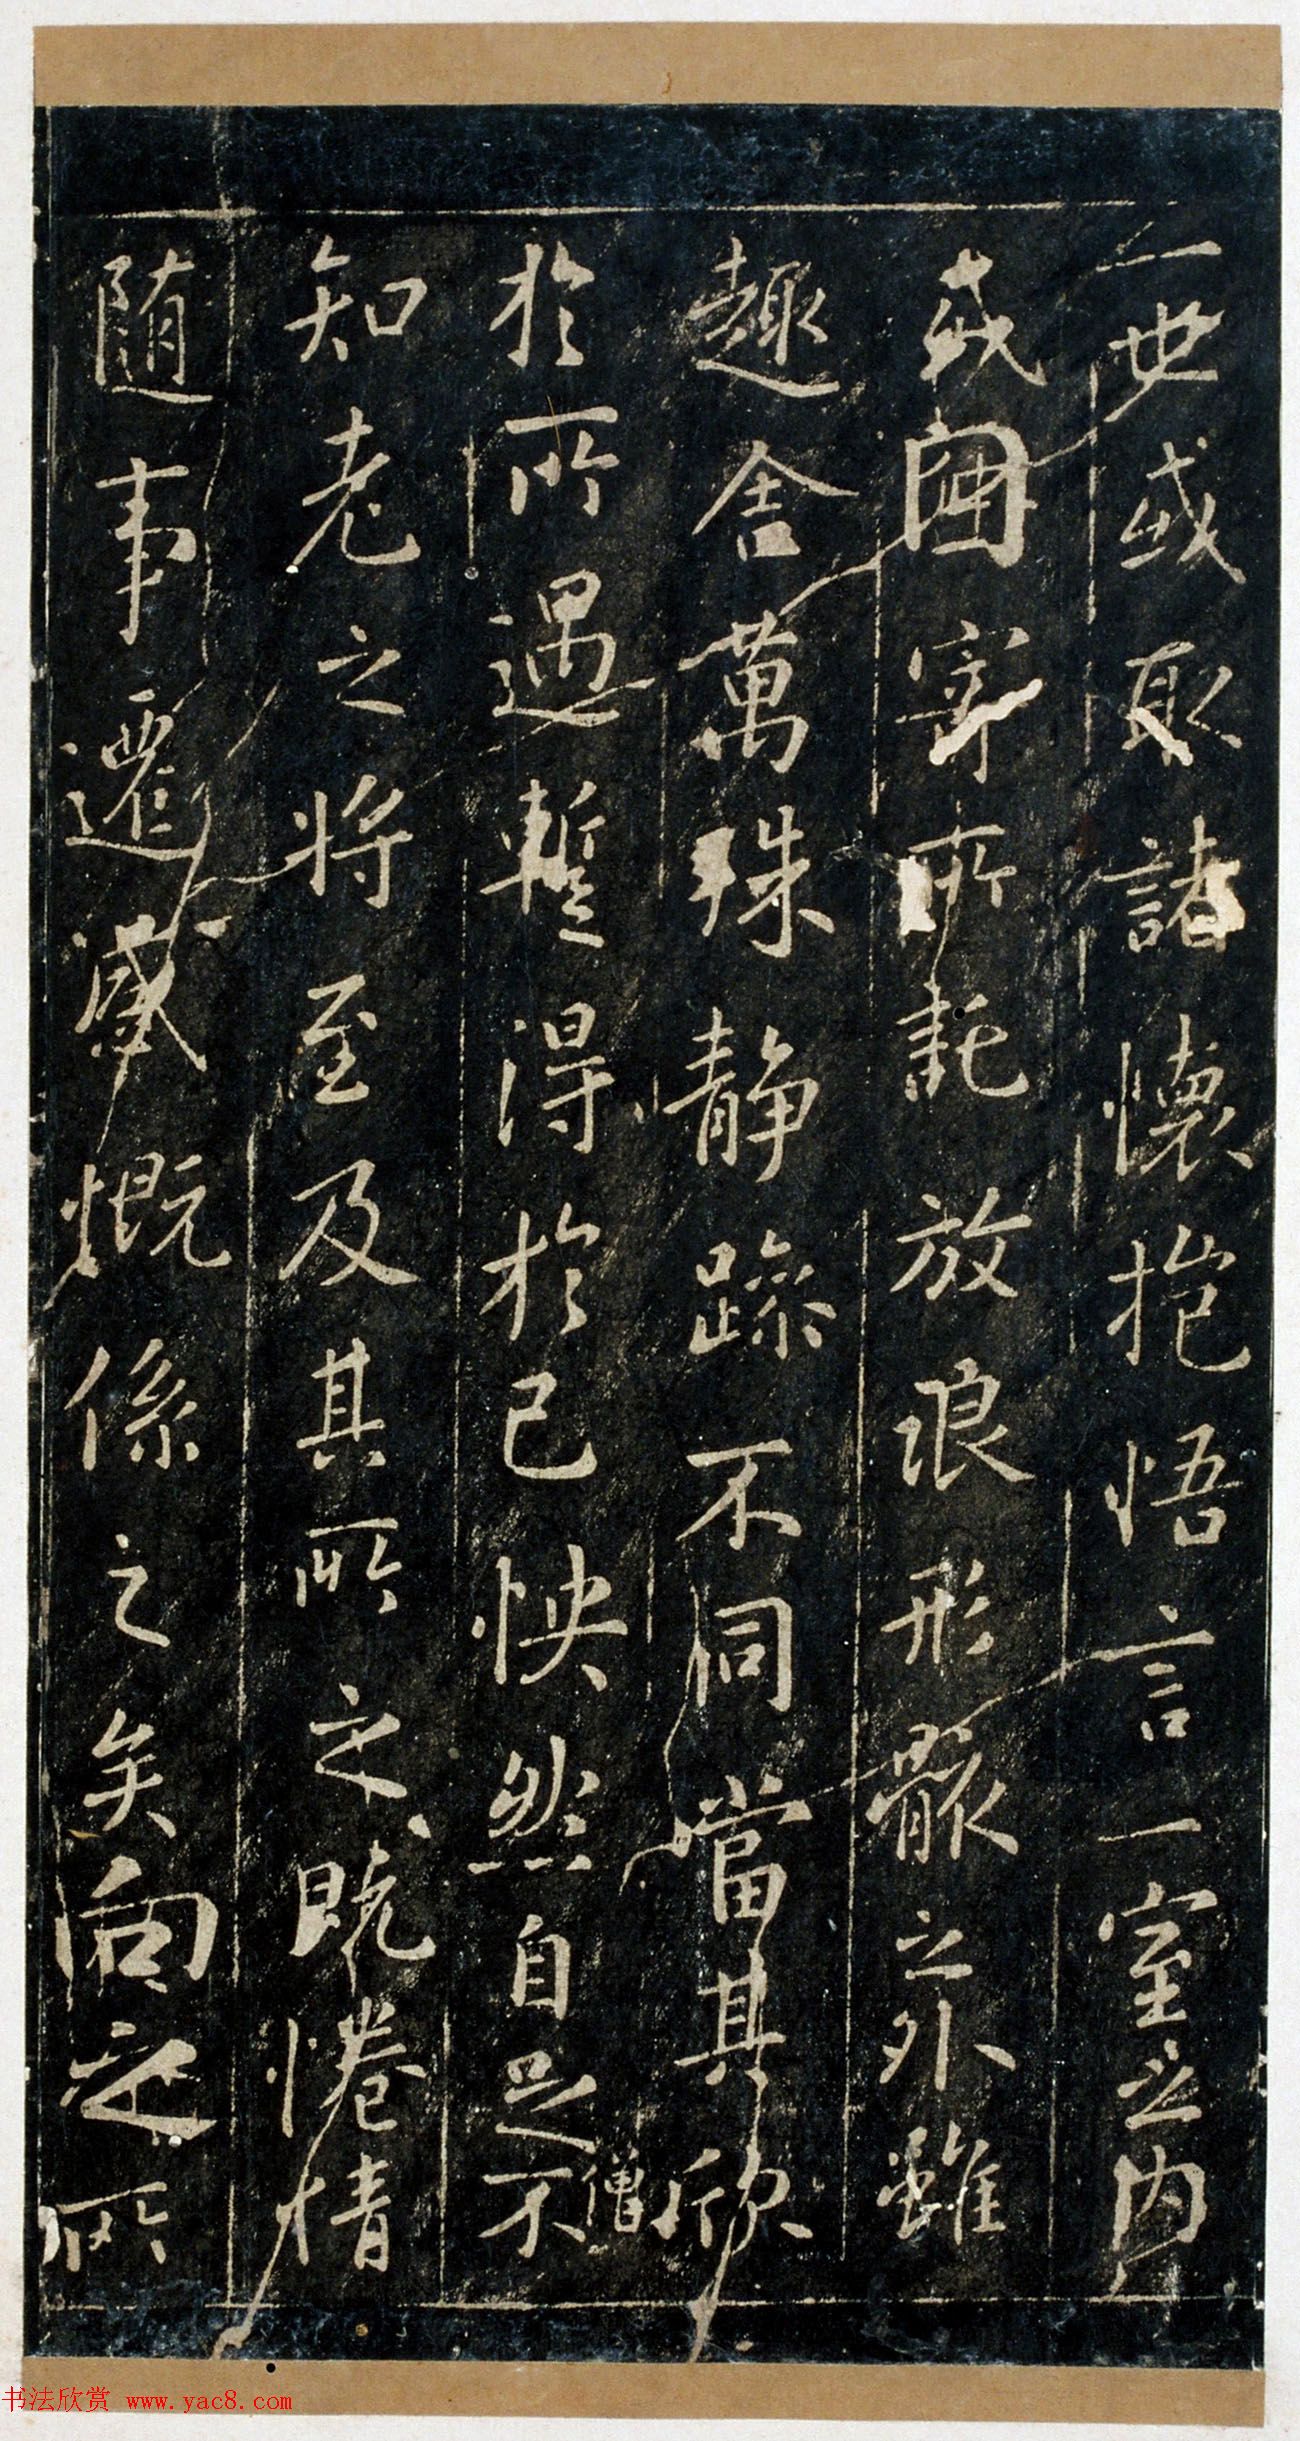 一世或取諸懷抱悟言一室之內
或因寄所託放浪形骸之外雖
趣舍萬殊靜躁不同當其欣
於所遇暫得於己怏然自足不
僧
知老之將至及其所之既惓情
隨事遷感慨係之矣向之所
书法欣赏 www.yac8.com